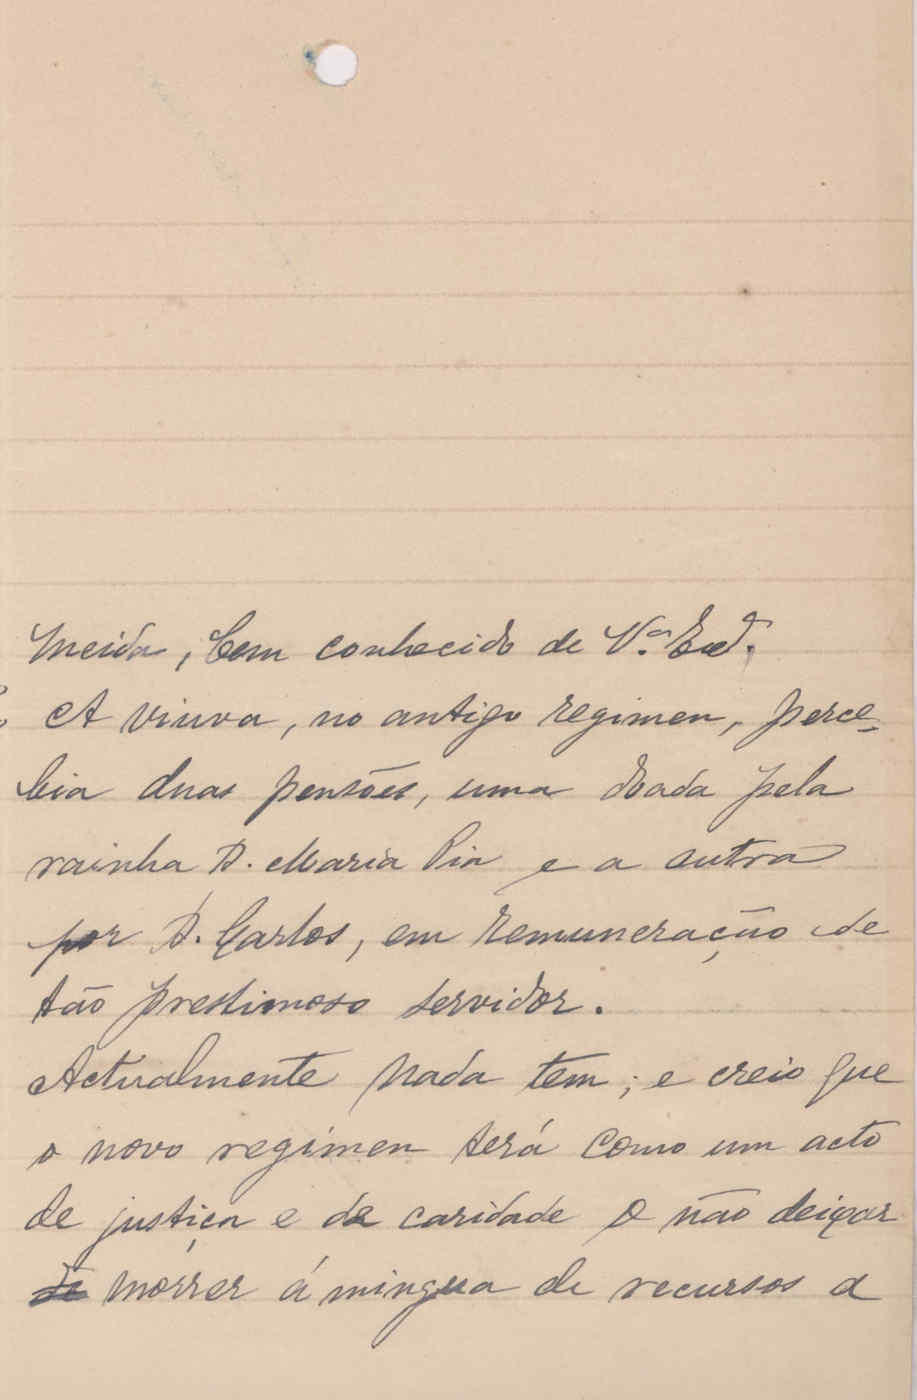 meida, bem conhecido de V.ª Ex.ª
A viuva, no antigo regimen, perce-
bia duas pensões, uma doada pela
rainha D. Maria Pia e a outra
por D. Carlos, em remuneração de
tão prestimoso servidor.
Actualmente nada tem; e creio que
o novo regimen será como um acto
de justiça e de caridade o não deixar
de morrer á mingua de recursos a